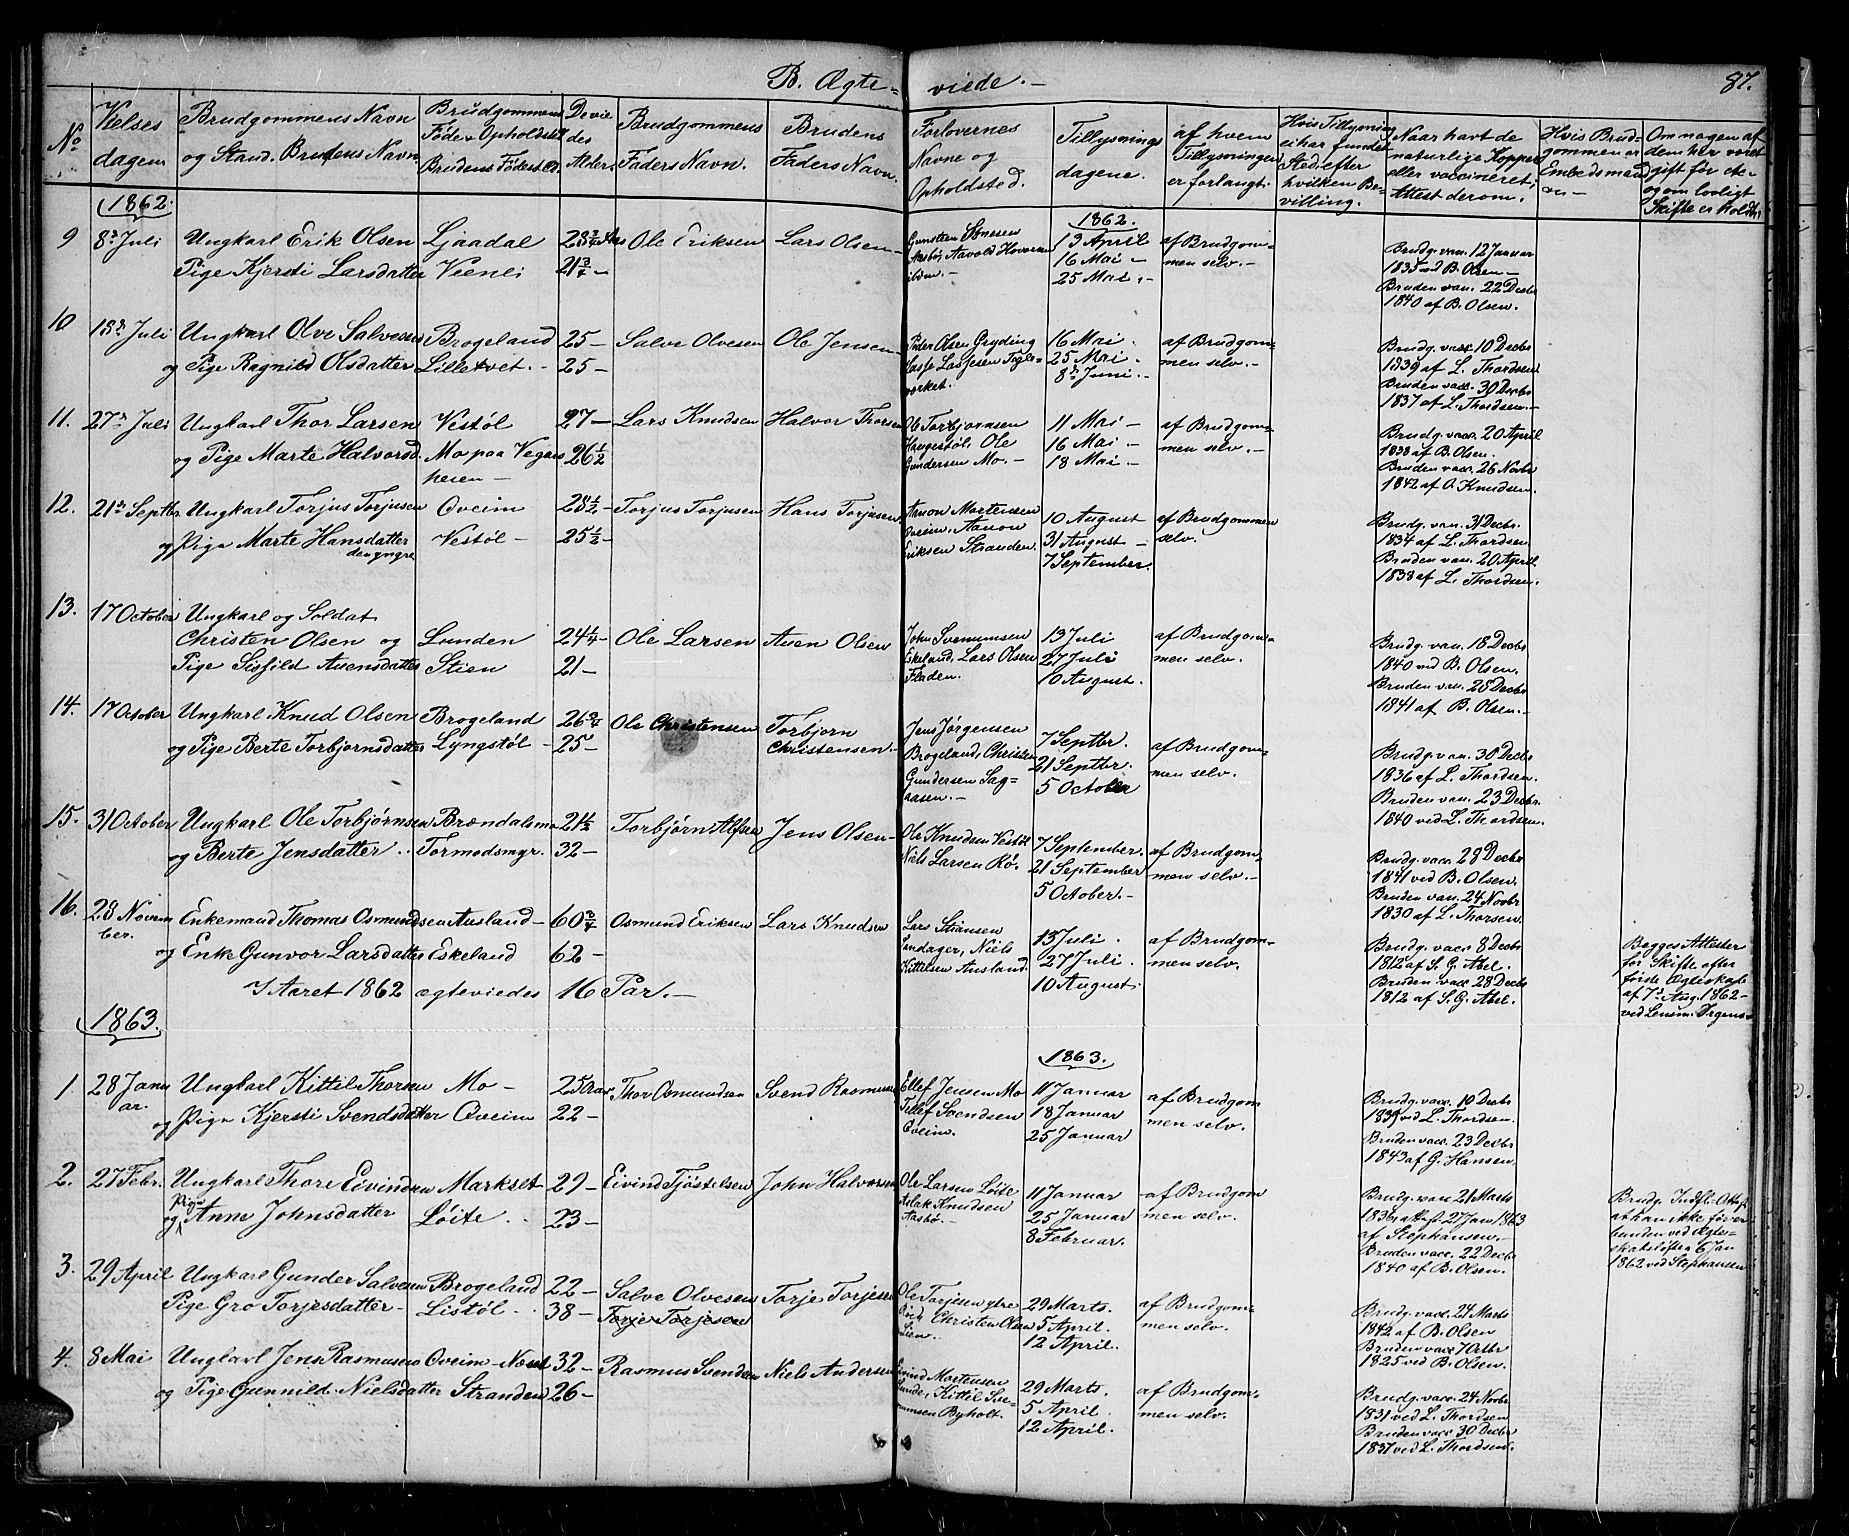 B. Ægte- viede. —
87.
No
Vielses dagen
Brudgommens Navn og Stand. Brudens Navn
Brudgommens Føde & Opholdsted Brudens Fødested.
De viedes Alder.
Brudgommens Faders Navn.
Brudens Faders Navn.
Forlovernes Navne og Opholdsted.
Tillysnings dagene.
af hvem Tillysningen er forlangt.
Hvis Tillysning ei har fundet Sted, efter hvilken Bevilling.
Naar havt de naturlige Kopper eller vaccineret; Attest derom.
Hvis Brudgommen er Embedsmand
Om nogen af dem har været gift før etc. og om lovligt Skifte er holdt.
1862.
1862.
9 8de Juli Ungkarl Erik Olsen Ljaadal 28 3/4 Aar Ole Eriksen Lars Olsen
Pige Kjersti Larsdatter Vienli 21 3/4 —
Gunsten
Aasbø, Aavold
ibdm. —
13 April
16 Mai —
25 Mai. —
af Brudgommen selv. —
Brudg. vac. 12 Januar
1835 ved B. Olsen —
Bruden vac. 22 Decbr
1840 af B. Olsen.
10 13de Juli Ungkarl Olve Salvesen Brogeland 25 — Salve Olvesen Ole Jensen
og Pige Ragnild Olsdatter Lilletvet. — 25 —
Peder Olsen Gryding
Lasse Lassesen Tegle-
værket.
16 Mai.
25 Mai.
8de Juni. —
af Brudgommen selv. —
Brudg. vacc. 10 Decbr
1839 af L. Thordsen
Bruden vacc. 30 Decbr
1837 af L. Thordsen. —
11. 27de Juli Ungkarl Thor Larsen Vestøl 27 — Lars Knudsen Halvor Thorsen
og Pige Marte Halvorsd. Mo paa Vegars 26 1/2
heien —
Ole Torbjørnsen
Haugestøl, Ole
Gundersen Mo. —
11 Mai —
16 Mai —
18 Mai. —
af Brudgommen selv. —
Brudg. vacc. 20 April
1838 af B. Olsen.
Bruden vacc. 26 Novbr
1842 af O. Knudsen.
12. 21de Septbr. Ungkarl Torjus Torjusen Oveim 28 1/2 — Torjus Torjusen Hans Torjusen
og Pige Marte Hansdatter Vestøl — 25 1/2 —
den yngre
Aanon Mortensen
Oveim, Aanon
Eriksen Stranden.
10 August
31 August —
7 September.
af Brudgommen
selv.
Brudg. vac. 31 Decbr.
1834 af L. Thordsen
Bruden vac. 20 April
1838 af L. Thordsen.
13. 17 October Ungkarl og Soldat
Christen Olsen og Lunden 24 1/4 — Ole Larsen Aven Olsen
Pige Sisfild Avensdatter Stien 21 —
John Svenumsen
Eskeland, Lars Olsen
Fladen.
13 Juli
27 Juli
10 August.
af Brudgommen selv.
Brudg. vac. 18 Decbr
1840 ved B. Olsen.
Bruden vac. 28 Decbr
1841 af B. Olsen. —
14. 17 October Ungkarl Knud Olsen Brogeland 26 3/4 Ole Christensen Torbjørn
og Pige Berte Torbjørnsdatter Lyngstøl — 25 — Christensen. —
Jens Jørgensen
Brogeland, Christen
Gundersen Sag-
aasen. —
7 Septbr.
21 Septbr.
5 October
af Brudgommen selv.
Brudg. vac. 30 Decbr
1836 af L. Thordsen.
Bruden vac. 23 Decbr.
1840 ved L. Thordsen.
15. 31 October Ungkarl Ole Torbjørnsen Brændalsmo 21 1/2 Torbjørn Alfsen Jens Olsen —
og Berte Jensdatter Tormodsmyr. 32 —
Ole Knudsen Vestøl
Niels Larsen Rø.
7 September.
21 September
5 October. —
af Brudgommen selv. —
Brudg. vacc. 28 Decbr
1841 ved B. Olsen.
Bruden vac. 24 Novbr
1830 af L. Thorsen.
16. 28 Novem Enkemand Thomas Osmundsen Ausland — 60 3/4 Osmund Eriksen Lars Knudsen
ber.
og Enke Gunvor Larsdatter Eskeland 62 —
Lars
Niels
Kittelsen Ausland.
13 Juli.
27 Juli.
10 August.
af Brudgommen selv.
Brudg. vacc. 8 Decbr
1812 af S. G. Abel.
Bruden vacc. 28 Decbr
1812 af S. G. Abel.
Begges Attester
for Skifte efter
første Ægteskab
af 7de Aug. 1862 —
ved Lensm.
I Aaret 1862 ægteviedes 16 Par. —
1863.
1863.
1. 28 Janu Ungkarl Kittil Thorsen Mo — 25 Aar Thor Osmundsen Svend Rasmusen
ar.
og Pige Kjersti Svendsdatter Oveim 22 —
Ellef Jensen Mo
Tellef Svendsen
Oveim.
11 Januar
18 Januar
25 Januar
af Brudgom
men selv.
Brudg. vacc. 10 Decbr
1839 ved L. Thordsen.
Bruden vacc. 23 Decbr
1843 af G. Hansen.
2. 27 Febr. Ungkarl Thore Eivindsen Markset 29 — Eivind Tjøstelsen John Halvorsen
og Pige Anne Johnsdatter Løite. 23 —
Ole Larsen Løite
Aslak Knudsen
Aasbø. —
11 Januar
25 Januar
8 Februar.
af Brudgom
men selv.
Brudg. vacc. 21 Marts
1836, att. af 27 Jan 1863
af Stephansen.
Bruden vacc. 22 Decbr
1840 af B. Olsen.
Brudg. Indfl. Attest
at han ikke før er
bunden ved Ægte-
skabsløfte 6 Jan
1862 ved Stephansen
3. 29 April Ungkarl Gunder Salvesen Brogeland 22 — Salve Olvesen Torje Torjesen
Pige Gro Torjesdatter — Listøl. 38 — Torje Torjesen
Ole Torjesen ytre
Christen Olsen
Lien.
29 Marts.
5 April.
12 April.
af Brudgommen selv.
Brudg. vacc. 27 Marts
1842 af B. Olsen
Bruden vacc. 7 Octbr
1825 ved B. Olsen.
4. 8 Mai Ungkarl Jens Rasmusen Oveim 32 — Rasmus Svendsen Niels Andersen
og Pige Gunnild Nielsdatter Stranden 26 —
Eivind Mortensen
Kittil Sve-
numsen Byholt.
29 Marts.
5 April
12 April.
af Brudgommen selv.
Brudg. vacc. 24 Novbr
1831 ved L. Thordsen
Bruden vacc. 30 Decbr
1837 ved L. Thordsen.